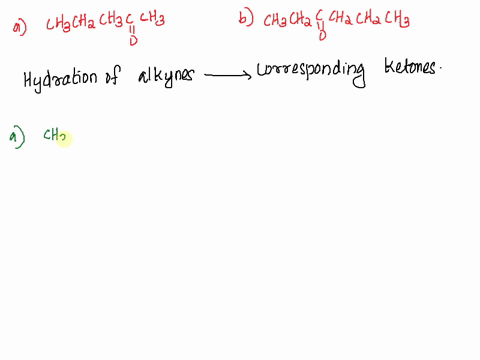 a) CH3CH2 CH3 C CH3 b) CH3CH2 C CH2 CH2 CH3
O O
Hydration of alkynes → corresponding ketones.
a) CH3